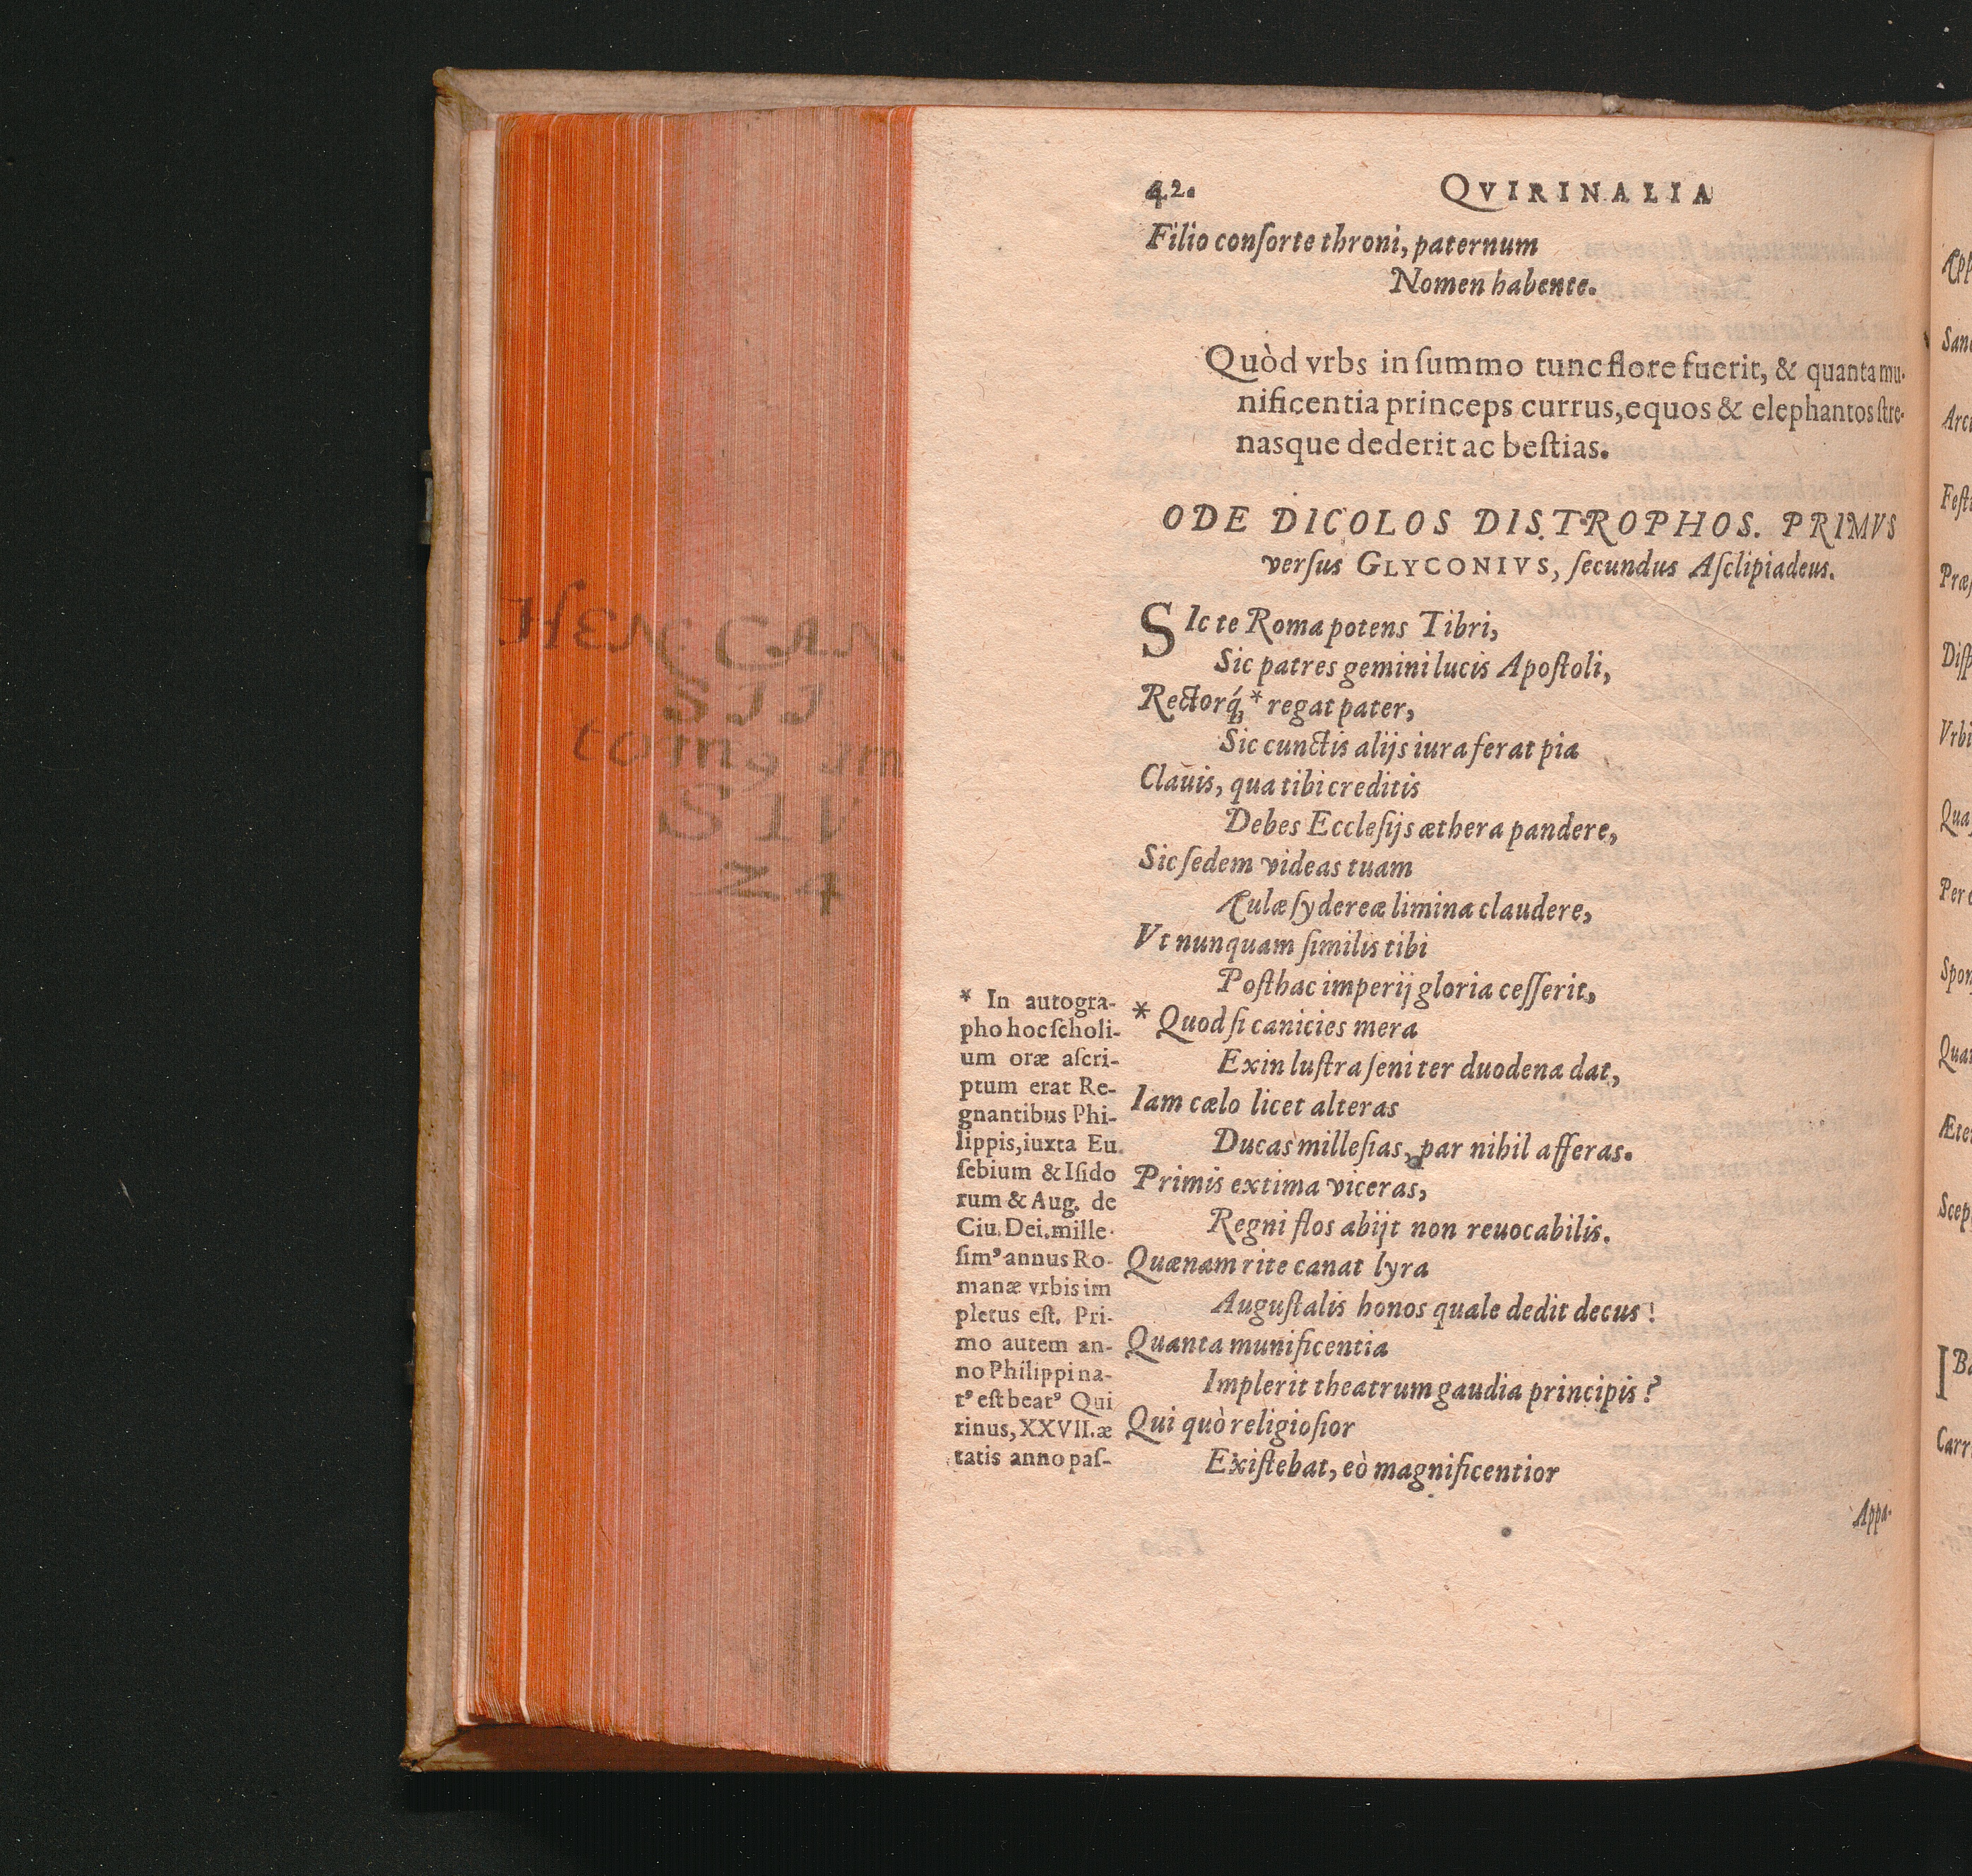 42. QVIRINALIA
Filio conſorte throni, paternum
Nomen habente.
Quòd vrbs in ſummo tunc flore fuerit, & quanta mu-
nificentia princeps currus, equos & elephantos ſtre-
nasque dederit ac beſtias.
ODE DICOLOS DISTROPHOS. PRIMVS
verſus GLYCONIVS, ſecundus Aſclipiadeus.
SIc te Roma potens Tibri,
Sic patres gemini lucis Apoſtoli,
Rectorq́; * regat pater,
Sic cunctis alijs iura ferat pia
Clauis, qua tibi creditis
Debes Eccleſijs æthera pandere,
Sic ſedem videas tuam
Aulæ ſydereæ limina claudere,
Vt nunquam ſimilis tibi
Poſthac imperij gloria ceſſerit,
* Quod ſi canicies mera
Exin luſtra ſeni ter duodena dat,
Iam cælo licet alteras
Ducas milleſias, par nihil afferas.
Primis extima viceras,
Regni flos abijt non reuocabilis.
Quænam rite canat lyra
Auguſtalis honos quale dedit decus!
Quanta munificentia
Implerit theatrum gaudia principis?
Qui quò religioſior
Exiſtebat, eò magnificentior
Appa-
* In autogra-
pho hoc ſcholi-
um oræ aſcri-
ptum erat Re-
gnantibus Phi-
lippis, iuxta Eu.
ſebium & Iſido
rum & Aug. de
Ciu. Dei. mille-
ſimꝰ annus Ro-
manæ vrbis im
pletus eſt. Pri-
mo autem an-
no Philippi na-
tꝰ eſt beatꝰ Qui
rinus, XXVII. æ
tatis anno paſ-
HEN CAN
SII
tomꝰ
24